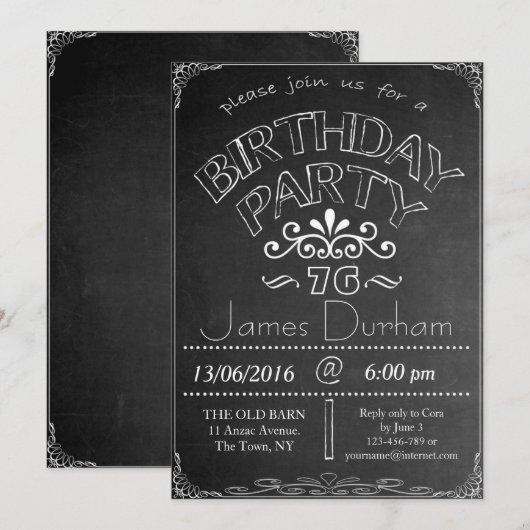 please join us for a
BIRTHDAY
PARTY
76
James Durham
13/06/2016 @ 6:00 pm
THE OLD BARN
11 Anzac Avenue.
The Town, NY
Reply only to Cora
by June 3
123-456-789 or
yourname@internet.com